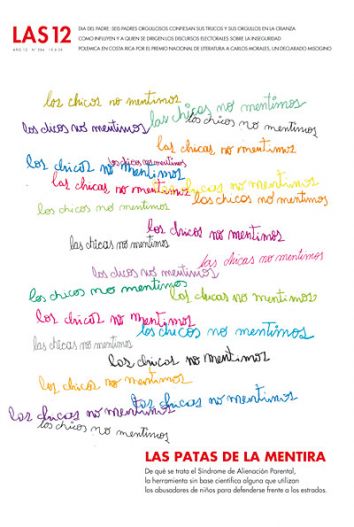 LAS12
DIA DEL PADRE: SEIS PADRES ORGULLOSOS CONFIESAN SUS TRUCOS Y SUS ORGULLOS EN LA CRIANZA
COMO INFLUYEN Y A QUIEN SE DIRIGEN LOS DISCURSOS ELECTORALES SOBRE LA INSEGURIDAD
AÑO 12
POLEMICA EN COSTA RICA POR EL PREMIO NACIONAL DE LITERATURA A CARLOS MORALES, UN DECLARADO MISOGINO
los chicos no mentimos
las chicas no mentimos
los chicos no mentimos
los chicos no mentimos
las chicas no mentimos
los chicos no mentimos
los chicos no mentimos
las chicas no mentimos
las chicas no mentimos
las chicas no mentimos
los chicos no mentimos
los chicos no mentimos
las chicas no mentimos
las chicas no mentimos
los chicos no mentimos
los chicos no mentimos
las chicas no mentimos
los chicos no mentimos
los chicos no mentimos
las chicas no mentimos
los chicos no mentimos
los chicos no mentimos
las chicas no mentimos
las chicas no mentimos
los chicos no mentimos
LAS PATAS DE LA MENTIRA
De qué se trata el Síndrome de Alienación Parental,
la herramienta sin base científica alguna que utilizan
los abusadores de niños para defenderse frente a los estrados.